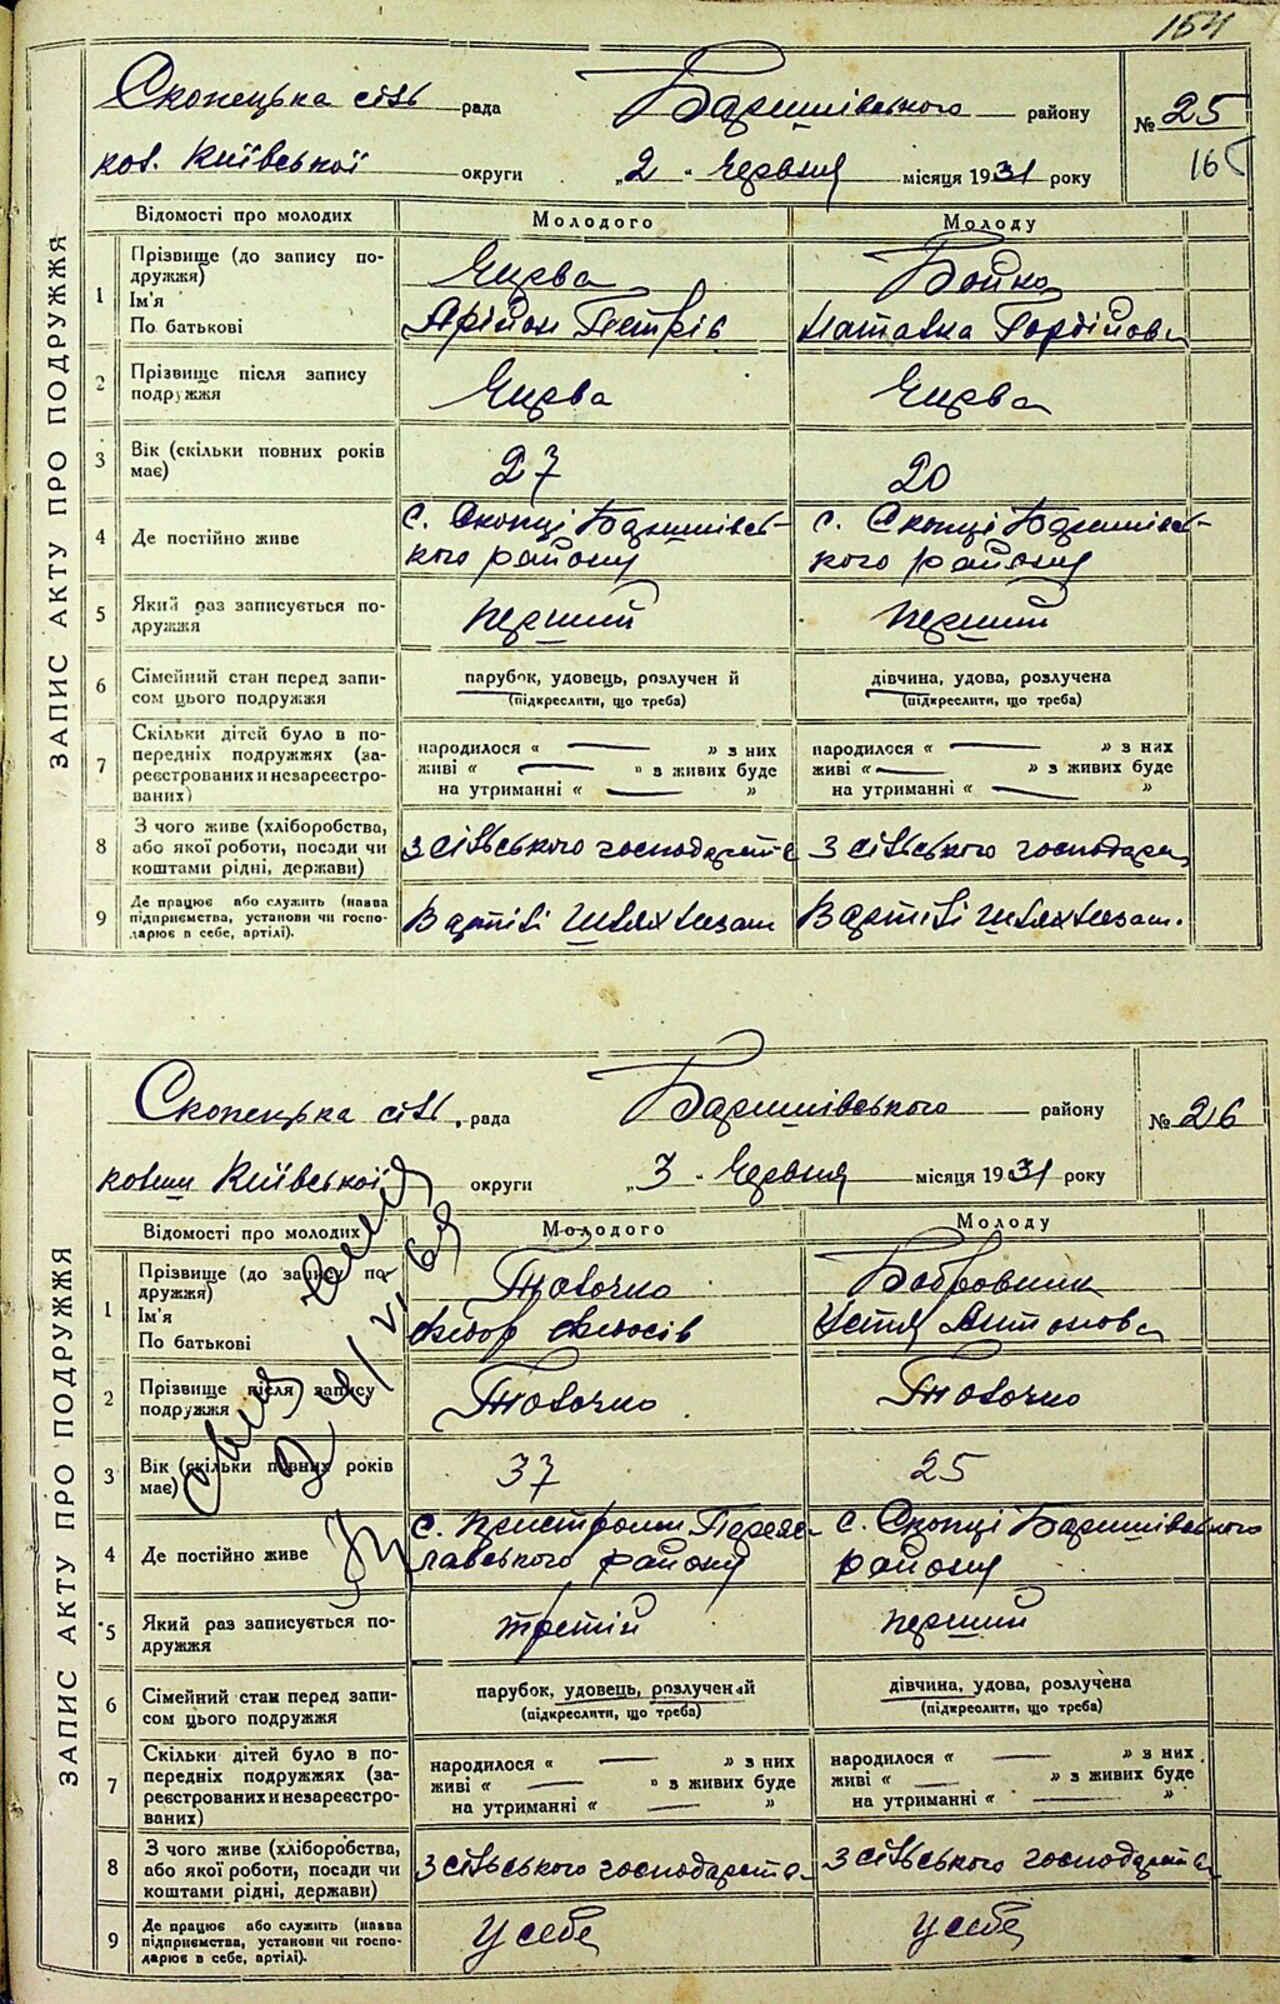 154
ЗАПИС АКТУ ПРО ПОДРУЖЖЯ
Скопецька сіль рада Баришівського району № 25
кол. Київської округи „2" Червня місяця 1931 року 16
Відомості про молодих Молодого Молоду
1 Прізвище (до запису подружжя) Бойко
Ім'я
По батькові Петрів Наталка Гордійова
2 Прізвище після запису
подружжя
3 Вік (скільки повних років
має) 27 20
4 Де постійно живе с. Скопці Баришівсь- с. Скопці Баришівсь-
кого району кого району
5 Який раз записується по-
дружжя перший перший
6 Сімейний стан перед запи-
сом цього подружжя
парубок, удовець, розлучений дівчина, удова, розлучена
(підкреслити, що треба) (підкреслити, що треба)
7 Скільки дітей було в по-
передніх подружжях (за-
реєстрованих и незареєстро-
ваних)
народилося « — » з них народилося « — » з них
живі « — » з живих буде живі « — » з живих буде
на утриманні « — » на утриманні « — »
8 З чого живе (хліборобства,
або якої роботи, посади чи
коштами рідні, держави)
З сільського господарств З сільського господарс
9 Де працює або служить (назва
підприємства, установи чи госпо-
дарює в себе, артілі).
В артілі Шлях Незам В артілі Шлях Незам.
ЗАПИС АКТУ ПРО ПОДРУЖЖЯ
Скопецька сіл. рада Баришівського району № 26
колиш Київської округи „3" Червня місяця 1931 року
Відомості про молодих Молодого Молоду
1 Прізвище (до запису по-
дружжя) Толочко Бобровник
Ім'я
По батькові Федор Федосів Устя Антонова
2 Прізвище після запису
подружжя Толочко Толочко
3 Вік (скільки повних років
має) 37 25
4 Де постійно живе с. Пристроми Переяс- с. Скопці Баришівського
лавського району району
5 Який раз записується по-
дружжя третій перший
6 Сімейний стан перед запи-
сом цього подружжя
парубок, удовець, розлучений дівчина, удова, розлучена
(підкреслити, що треба) (підкреслити, що треба)
7 Скільки дітей було в по-
передніх подружжях (за-
реєстрованих и незареєстро-
ваних)
народилося « — » з них народилося « — » з них
живі « — » з живих буде живі « — » з живих буде
на утриманні « — » на утриманні « — »
8 З чого живе (хліборобства,
або якої роботи, посади чи
коштами рідні, держави)
З сільського господарств З сільського господарств
9 Де працює або служить (назва
підприємства, установи чи госпо-
дарює в себе, артілі).
У себе У себе